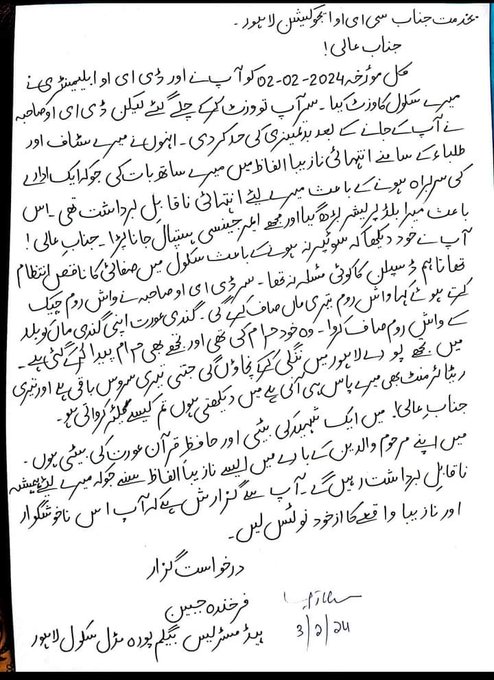 بخدمت جناب سی ای او ایجوکیشن لاہور۔
جناب عالی!
کل مؤرخہ 2024-02-02 کو آپ نے اور ڈی ای او ایلیمنٹری نے
میرے سکول کا وزٹ کیا۔ سر آپ تو وزٹ کر کے چلے گئے لیکن ڈی ای او صاحبہ
نے آپ کے جانے کے بعد بدتمیزی کی حد کر دی۔ انہوں نے میرے سٹاف اور
طلباء کے سامنے انتہائی نازیبا الفاظ میں میرے ساتھ بات کی جو کہ ایک ادارے
کی سربراہ ہونے کے باعث میرے لیئے انتہائی ناقابلِ برداشت تھی۔ اس
باعث میرا بلڈ پریشر بڑھ گیا اور مجھے ایمرجینسی ہسپتال جانا پڑا۔ جنابِ عالی!
آپ نے خود دیکھا کہ سوئیپر نہ ہونے کے باعث سکول میں صفائی کا ناقص انتظام
تھا تاہم ڈسپلن کا کوئی مسئلہ نہ تھا۔ سر ڈی ای او صاحبہ نے واش روم چیک
کرتے ہوئے کہا واش روم تیری ماں صاف کرے گی۔ گندی عورت اپنی گندی ماں کو بلا
کے واش روم صاف کروا۔ وہ خود حرام کی تھی اور تجھے بھی حرام پیدا کر کے گئی ہے۔
میں تجھے پورے لاہور میں ننگی کر کے نچاؤں گی جتنی تیری سروس باقی ہے اور تیری
ریٹائرمنٹ بھی میرے پاس ہی آنی ہے میں دیکھتی ہوں تم کیسے کرواتی ہو۔
جنابِ عالی! میں ایک شہید کی بیٹی اور حافظِ قرآن عورت کی بیٹی ہوں۔
میں اپنے مرحوم والدین کے بارے میں ایسے نازیبا الفاظ سنے جو کہ میرے لیئے ہمیشہ
ناقابلِ برداشت رہیں گے۔ آپ سے گزارش ہے کہ آپ اس ناخوشگوار
اور نازیبا واقعے کا از خود نوٹس لیں۔
درخواست گزار
فرخندہ جبین
ہیڈ مسٹریس بیگم پورہ مڈل سکول لاہور
3/2/24